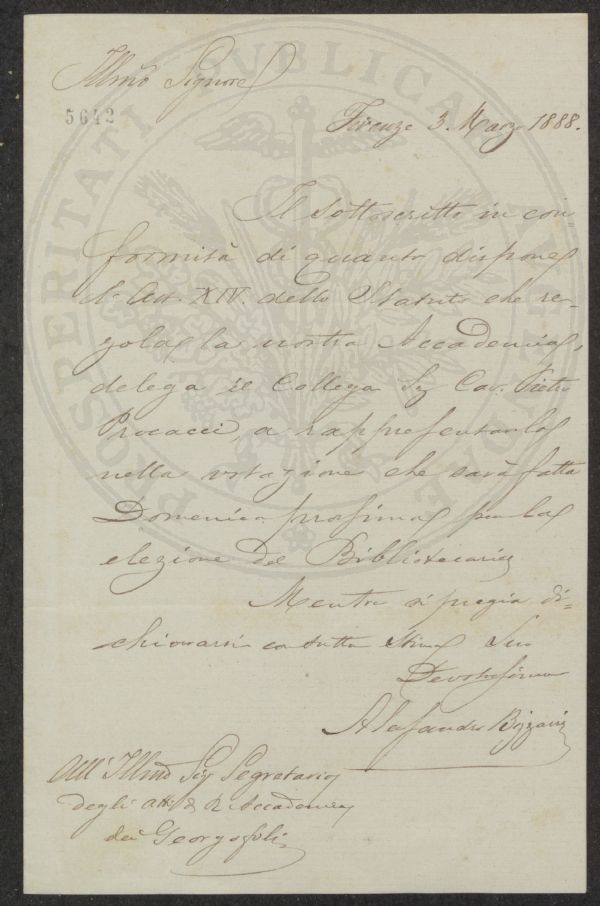 Illmo Signore
5642
Firenze 3. Marzo 1888.
Il sottoscritto in con=
formità di quanto dispone
l'Art. XIV. dello Statuto che re-
gola la nostra Accademia,
delega il Collega Sig Cav. Pietro
Procacci, a rappresentarlo
nella votazione che sarà fatta
Domenica prossima per la
elezione del Bibliotecario
Mentre si pregia di=
chiararsi con tutta stima Suo
Devotissimo
Alessandro
All' Illmo Sig Segretario
degli Atti d. R. Accademia
dei Georgofili
PROSPERITATI PUBLICAE AUGENDAE